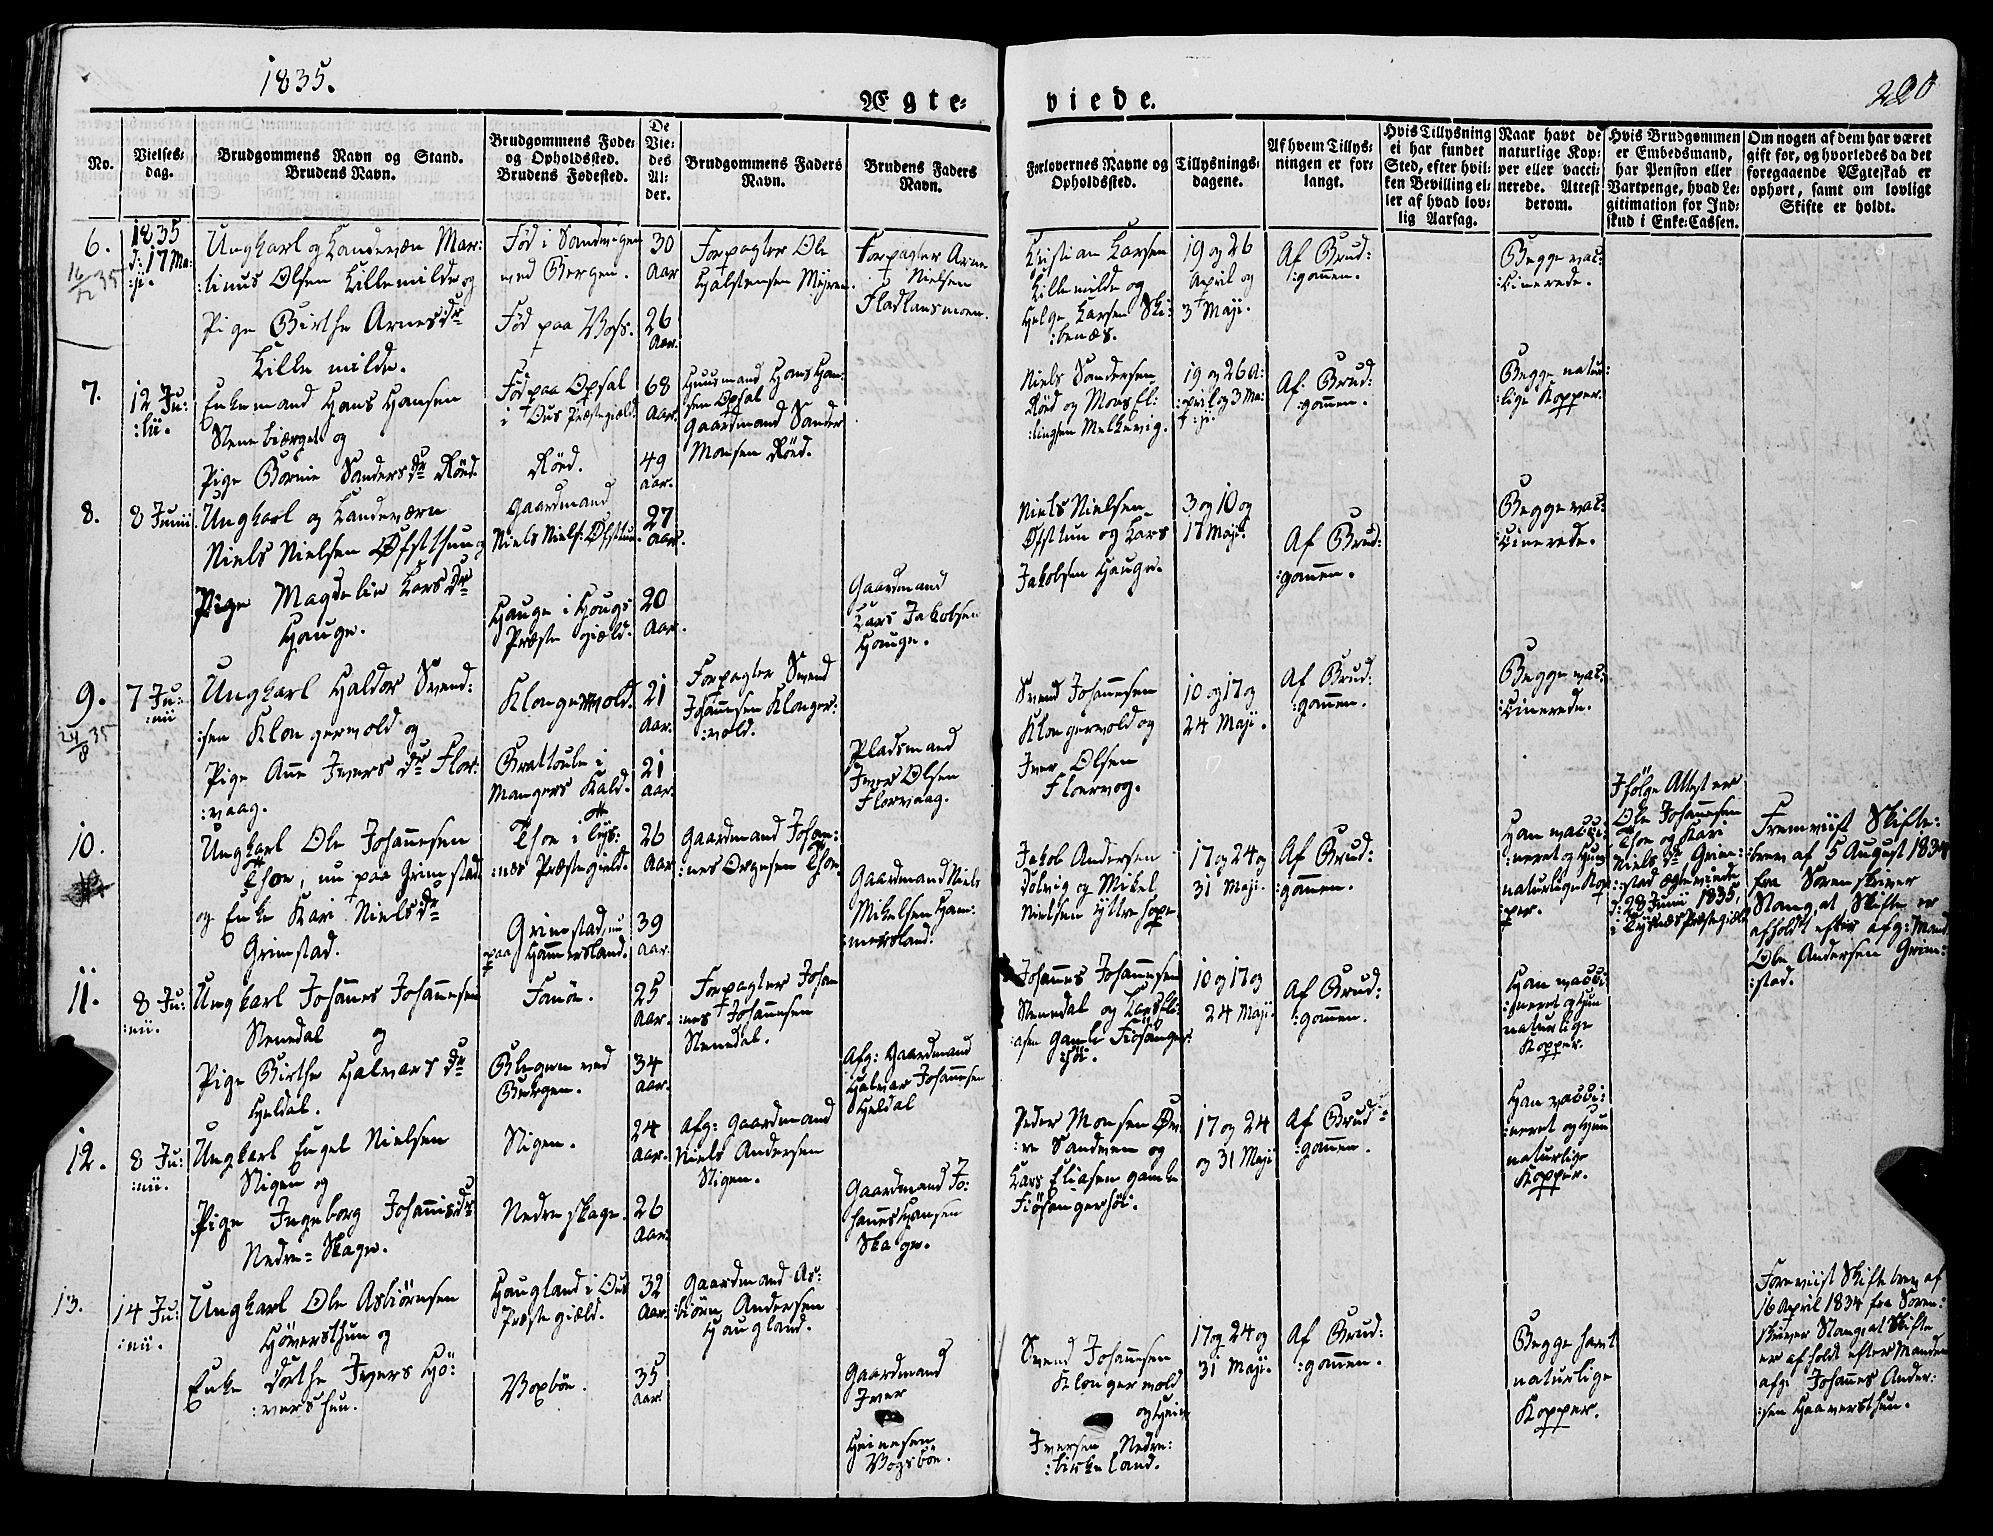 1835.
Ægte-
viede.
220
No.
Vielses-
dag.
Brudgommens Navn og Stand.
Brudens Navn.
Brudgommens Føde-
og Opholdssted.
Brudens Fødested.
De
Vie-
des
Al-
der.
Brudgommens Faders
Navn.
Brudens Faders
Navn.
Forlovernes Navne og
Opholdssted.
Tillysnings-
dagene.
Af hvem Tillys-
ningen er for-
langt.
Hvis Tillysning
ei har fundet
Sted, efter hvil-
ken Bevilling el-
ler af hvad lov-
lig Aarsag.
Naar havt de
naturlige Kop-
per eller vacci-
nerede. Attest
derom.
Hvis Brudgommen
er Embedsmand,
har Pension eller
Vartpenge, hvad Le-
gitimation for Ind-
skud i Enke-Cassen.
Om nogen af dem har været
gift før, og hvorledes da det
foregaaende Ægteskab er
ophørt, samt om lovligt
Skifte er holdt.
6.
16/12 35
1835
d: 17 Ma:
:ji.
Ungkarl og Landeværn Mar:
:tinus Olsen Lillemilde og
Pige Birthe Arnesdr
Lille milde.
Fød i Sandvigen
ved Bergen.
Fød paa Voss.
30
Aar
26
Aar.
Forpagter Ole
Halstensen Myren.
Forpagter Arne
Nielsen
Fladlansmoen.
Kristian Larsen
Lillemilde og
Helge Larsen Ski:
:benæs.
19 og 26
April og
3 Maji.
Af Brud:
:gommen.
Begge vac:
:cinerede.
7.
12 Ju:
:lii.
Enkemand Hans Hansen
Stenebierget og
Pige Borni Sandersdr Röed.
Fød paa Opsal
i Ous Præstegield
Röed.
68
Aar.
49
aar.
Huusmand Hans Han:
sen Opsal
Gaardmand Sander
Monsen Röed.
Niels Sandersen
Röed og Mons El:
:lingsen Melkevig.
19 og 26 A:
:pril og 3 Ma:
:ji.
Af Brud:
:gommen.
Begge natur:
:lige Kopper.
8.
8 Junii
Ungkarl og Landeværn
Niels Nielsen Øfstthun og
Pige Magdeli Larsdr
Hauge.
Gaardmand
Niels Niels: Øfsttun.
Hauge i Hougs
Præste gield.
27
aar.
20
Aar.
Gaardmand
Lars Jakobsen
Hauge.
Niels Nielsen
Øfsttun og Lars
Jakobsen Hauge.
3 og 10 og
17 Maji.
Af Brud:
:gommen.
Begge vac:
:cinerede.
9.
24/8 35
7 Ju:
:nii
Ungkarl Haldor Svend:
:sen Klongervold og
Pige Ane Iversdr Flor:
:vaag.
Klongervold.
Brattoule i
Mangers Kald.
21
aar.
21
aar.
Forpagter Svend
Johannesen Klonger:
:vold.
Pladsmand
Iver Olsen
Florvaag.
Svend Johannesen
Klongervold og
Iver Olsen
Floervog.
10 og 17 og
24 Maji.
Af Brud:
:gommen.
Begge vac:
:cinerede.
10.
Ungkarl Ole Johannesen
Thoe, nu paa Grimstad
og Enke Kari Nielsdr
Grimstad.
Thoe i Tys:
:næs Præstegield.
Grimstad, nu
paa Hammersland.
26
Aar
39
aar.
Gaardmand Johan:
:nes Orgesen Thoe
Gaardmand Niels
Mikelsen Ham:
:mersland.
Jakob Andersen
Dolvig og Mikel
Nielsen Yttre Hope.
17 og 24 og
31 Maji.
Af Brud:
:gommen.
Han vacci:
:neret og Hun
naturlige Kop
:per.
Ifölge Attest er
Ole Johannesen
Thoe og Kari
Nielsdr Grim:
:stad ægteviede
d: 28 Junii 1835,
i Tysnæs Præstegield
Fremviist Skifte:
:brev af 5 August 1834
fra Sorenskriver
Stang, at Skifte er
afholdt efter afg: Mand
Ole Andersen Grim:
:stad.
11.
8 Ju:
:nii.
Ungkarl Johannes Johannesen
Stenedal og
Pige Birthe Halvarsdr
Heldal.
Fanöe.
Blegeren ved
Bergen.
25
Aar.
34
Aar.
Forpagter Johan
:nes Johannesen
Stenedal.
Afg: Gaardmand
Halvar Johannesen
Heldal
Johannes Johannesen
Stenedal og Lars Eli:
asen Gamle Fiösanger
:höi.
10 og 17 og
24 Maji
Af Brud:
:gommen.
Han vacci:
:neret og Hun
naturlige
Kopper.
12.
8 Ju:
:nii.
Ungkarl Engel Nielsen
Stigen og
Pige Ingeborg Johannisdr
Nedre-Skage.
Stigen.
Nedre Skage.
24
aar.
26
aar.
Afg: Gaardmand
Niels Andersen
Stigen.
Gaardmand Jo:
hannes Hansen
Skage.
Peder Monsen Øv:
:re Sandven og
Lars Eliasen gamle
Fiösangerhöi.
17 og 24
og 31 Maji
Af Brud:
:gommen.
Han vacci:
:neret og Hun
naturlige
Kopper.
13.
14 Ju:
:nii.
Ungkarl Ole Asbiørnsen
Höversthun og
Enke Dorthe Ivers Hö:
:versthun.
Haugland i Ous
Præstegield.
Voxböe.
32
Aar.
35
Aar
Gaardmand As:
biörn Andersen
Haugland.
Gaardmand
Iver
Heinesen
Vogsböe.
Svend Johannesen
Klongervold
og Heine
Iversen Nedre:
:birkeland.
17 og 24 og
31 Maji.
Af Brud:
:gommen.
Begge havt
naturlige
Kopper.
Foreviist Skiftebrev af
16 April 1834 fra Soren:
skriver Stang at Skifte
er afholdt efter Manden
afg: Johannes Ander:
:sen Haaversthun.